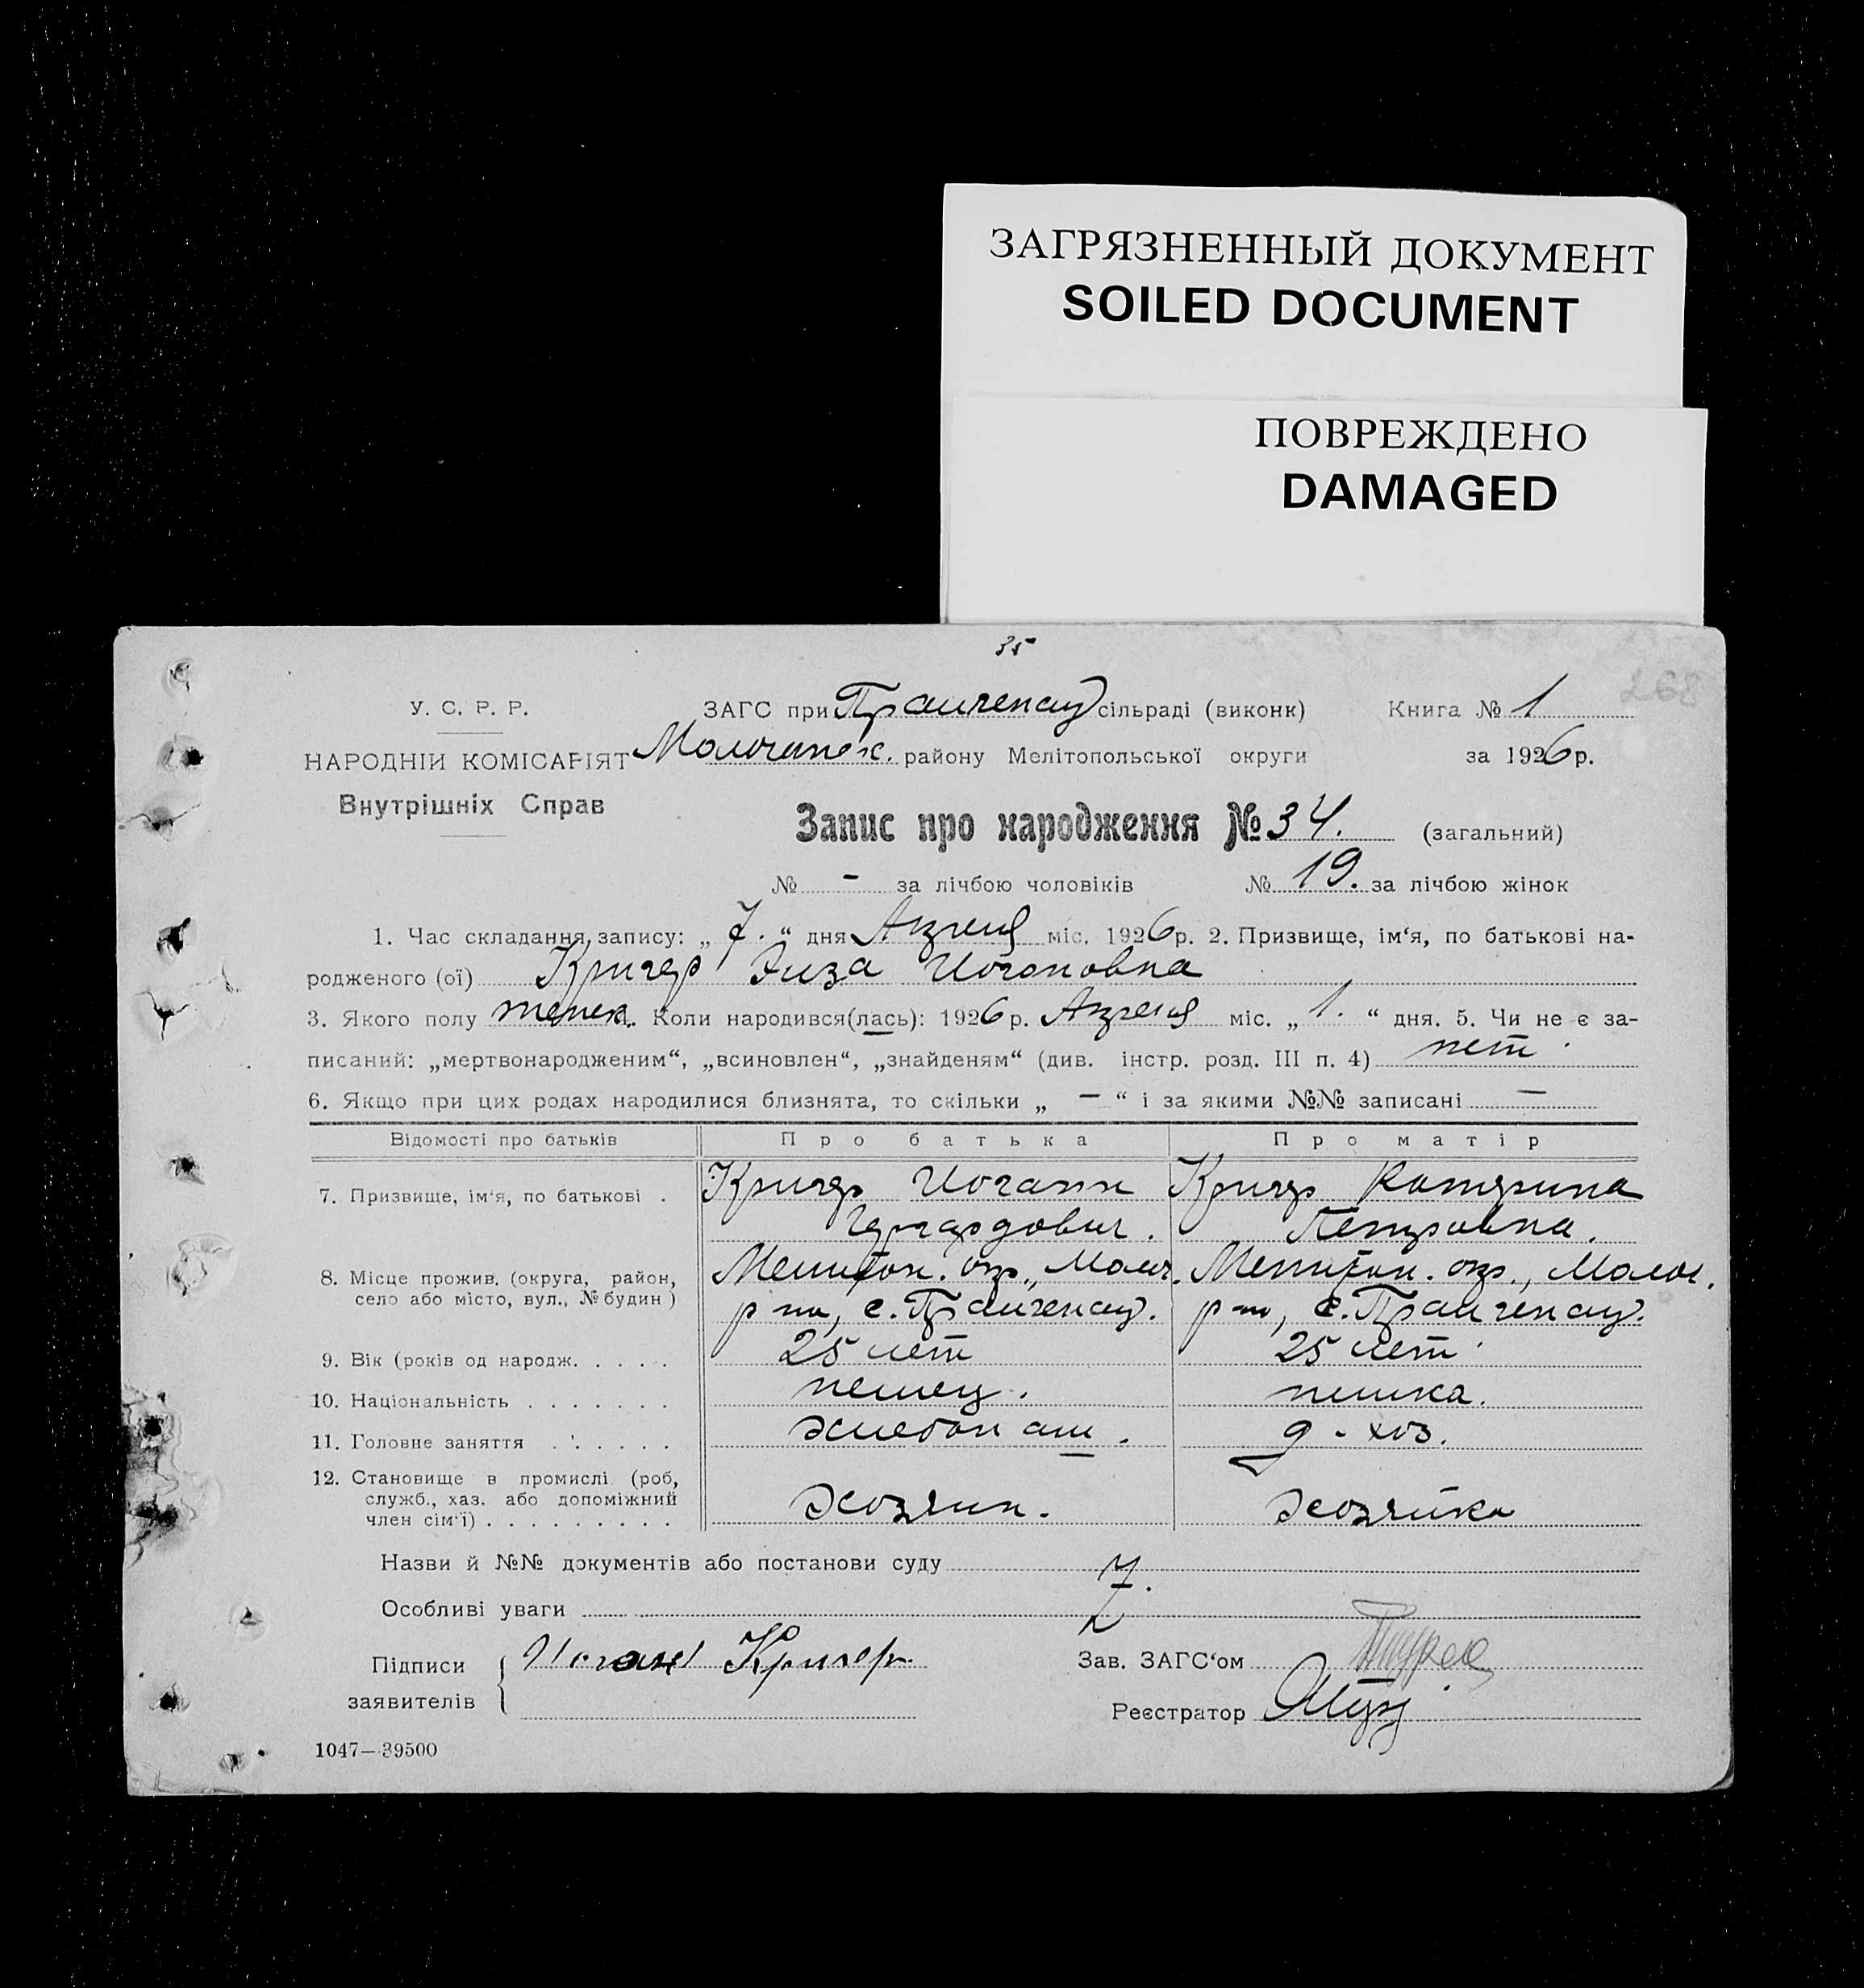 ЗАГРЯЗНЕННЫЙ ДОКУМЕНТ
SOILED DOCUMENT
ПОВРЕЖДЕНО
DAMAGED
35
268
У. С. Р. Р. ЗАГС при Прангенау сільраді (виконк) Книга № 1
НАРОДНІЙ КОМІСАРІЯТ Молочанск. району Мелітопольської округи за 1926 р.
Внутрішніх Справ
Запис про народження № 34. (загальний)
№ - за лічбою чоловіків № 19. за лічбою жінок
1. Час складання запису: „ 7. “ дня Апреля міс. 1926 р. 2. Призвище, ім‘я, по батькові на-
родженого (ої) Кригер Лиза Иогановна
3. Якого полу женск. Коли народився(лась): 1926 р. Апреля міс. „ 1. “ дня. 5. Чи не є за-
писаний: „мертвонародженим“, „всиновлен“, „знайденям“ (див. інстр. розд. III п. 4) нет
6. Якщо при цих родах народилися близнята, то скільки „ — “ і за якими №№ записані —
Відомості про батьків Про батька Про матір
7. Призвище, ім‘я, по батькові . Кригер Иоганн Кригер Катерина
Гергардович. Петровна.
8. Місце прожив. (округа, район, Мелитоп. окр., Молоч. Мелитоп. окр., Молоч.
село або місто, вул., № будин ) р-на, с. Прангенау. р-на, с. Прангенау.
9. Вік (років од народж. . . . . 25 лет 25 лет
10. Національність . . . . . . . немец. немка.
11. Головне заняття . . . . . . хлебопаш. д-хоз.
12. Становище в промислі (роб,
служб., хаз. або допоміжний Хозяин. Хозяйка
член сім‘ї) . . . . . . . . .
Назви й №№ документів або постанови суду
Особливі уваги
Підписи Иоган Кригер. Зав. ЗАГС‘ом
заявителів Реєстратор
1047—39500